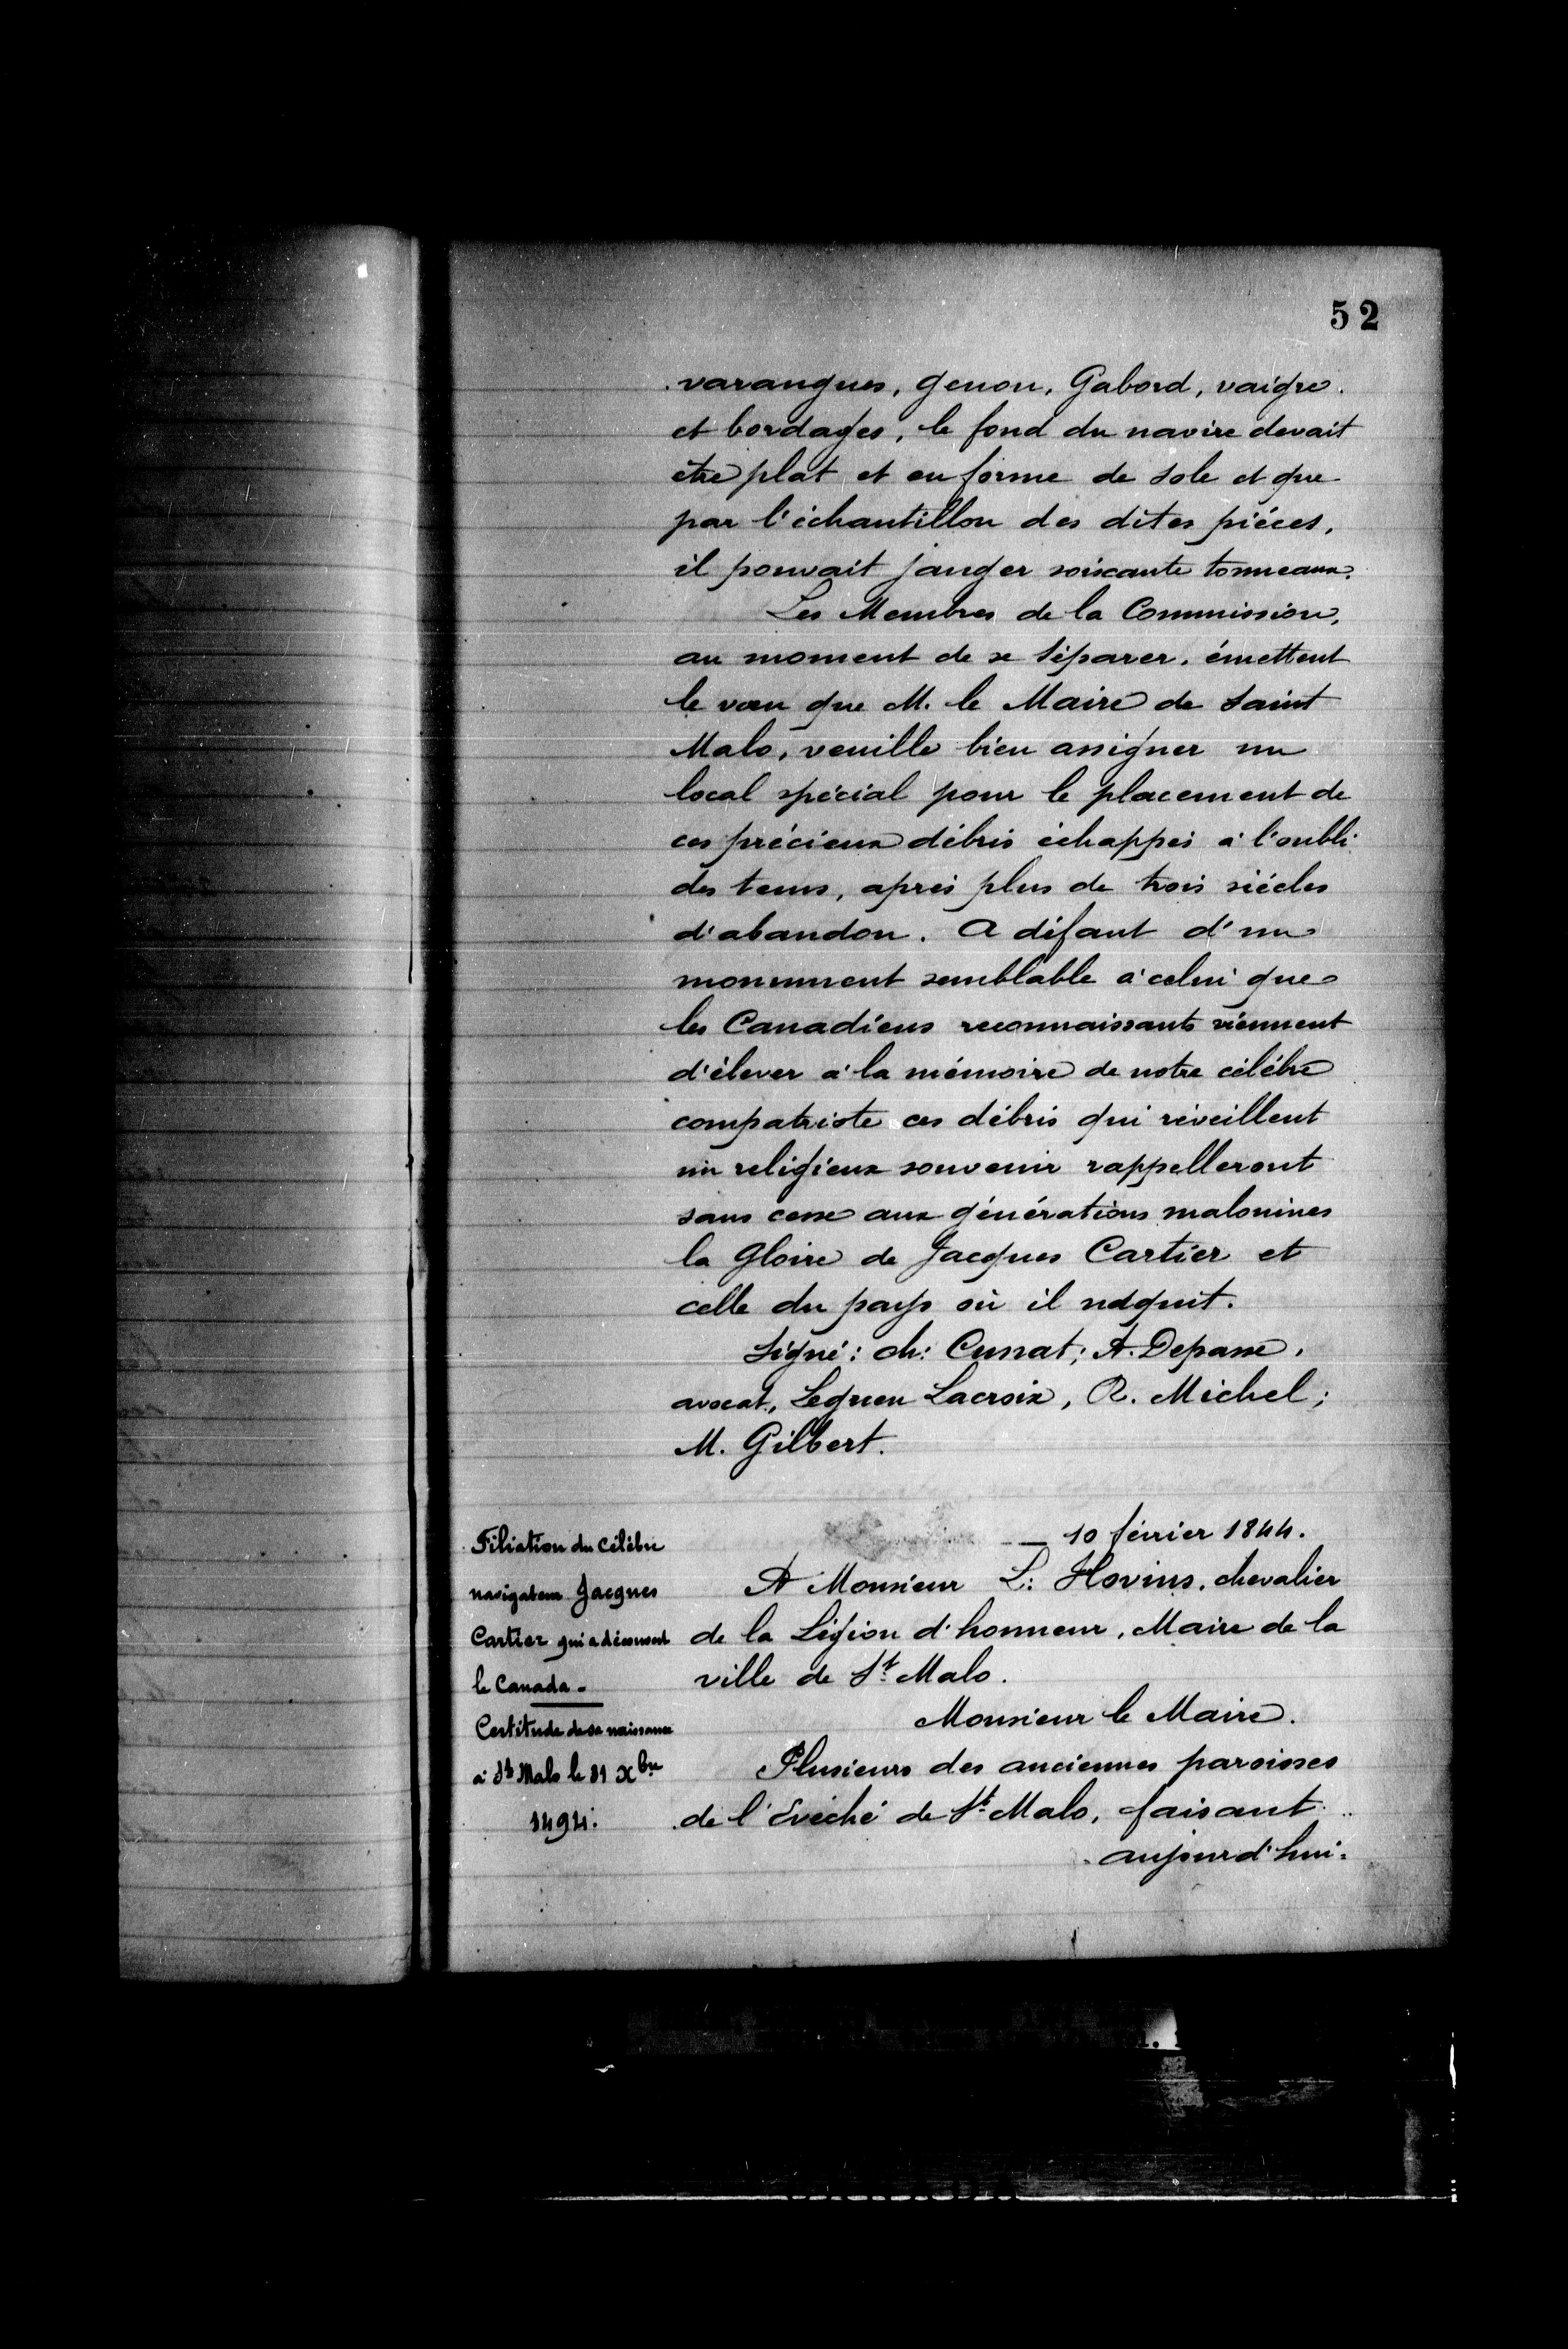 52
varangues, genou, Gabord, vaigre.
et bordages, le fond du navire devait
être plat et en forme de sole et que
par l'échantillon des dites pièces,
il pouvait janger soixante tonneaux.
Les Membres de la Commission,
au moment de se séparer, émettent
le vœu que M. le Maire de Saint
Malo, veuille bien assigner un
local spécial pour le placement de
ces précieux débris échappés à l'oubli
des tems, après plus de trois siècles
d'abandon. A défaut d'un
monument semblable à celui que
les Canadiens reconnaissants viennent
d'élever à la mémoire de notre célèbre
compatriote ces débris qui réveillent
un religieux souvenir rappelleront
sans cesse aux générations malouines
la gloire de Jacques Cartier et
celle du pays où il nâquit.
Signé: Ch: Cunat; A. Depasse,
avocat, Lequen Lacroix, R. Michel;
M. Gilbert.
Filiation du célèbre
navigateur Jacques
Cartier qui a découvert
le Canada -
Certitude de sa naissance
à St Malo le 31 Xbre
1494.
10 février 1844.
A Monsieur L: Hovius, chevalier
de la Légion d'honneur, Maire de la
ville de St Malo.
Monsieur le Maire.
Plusieurs des anciennes paroisses
de l'Evêché de St Malo, faisant
aujourd'hui